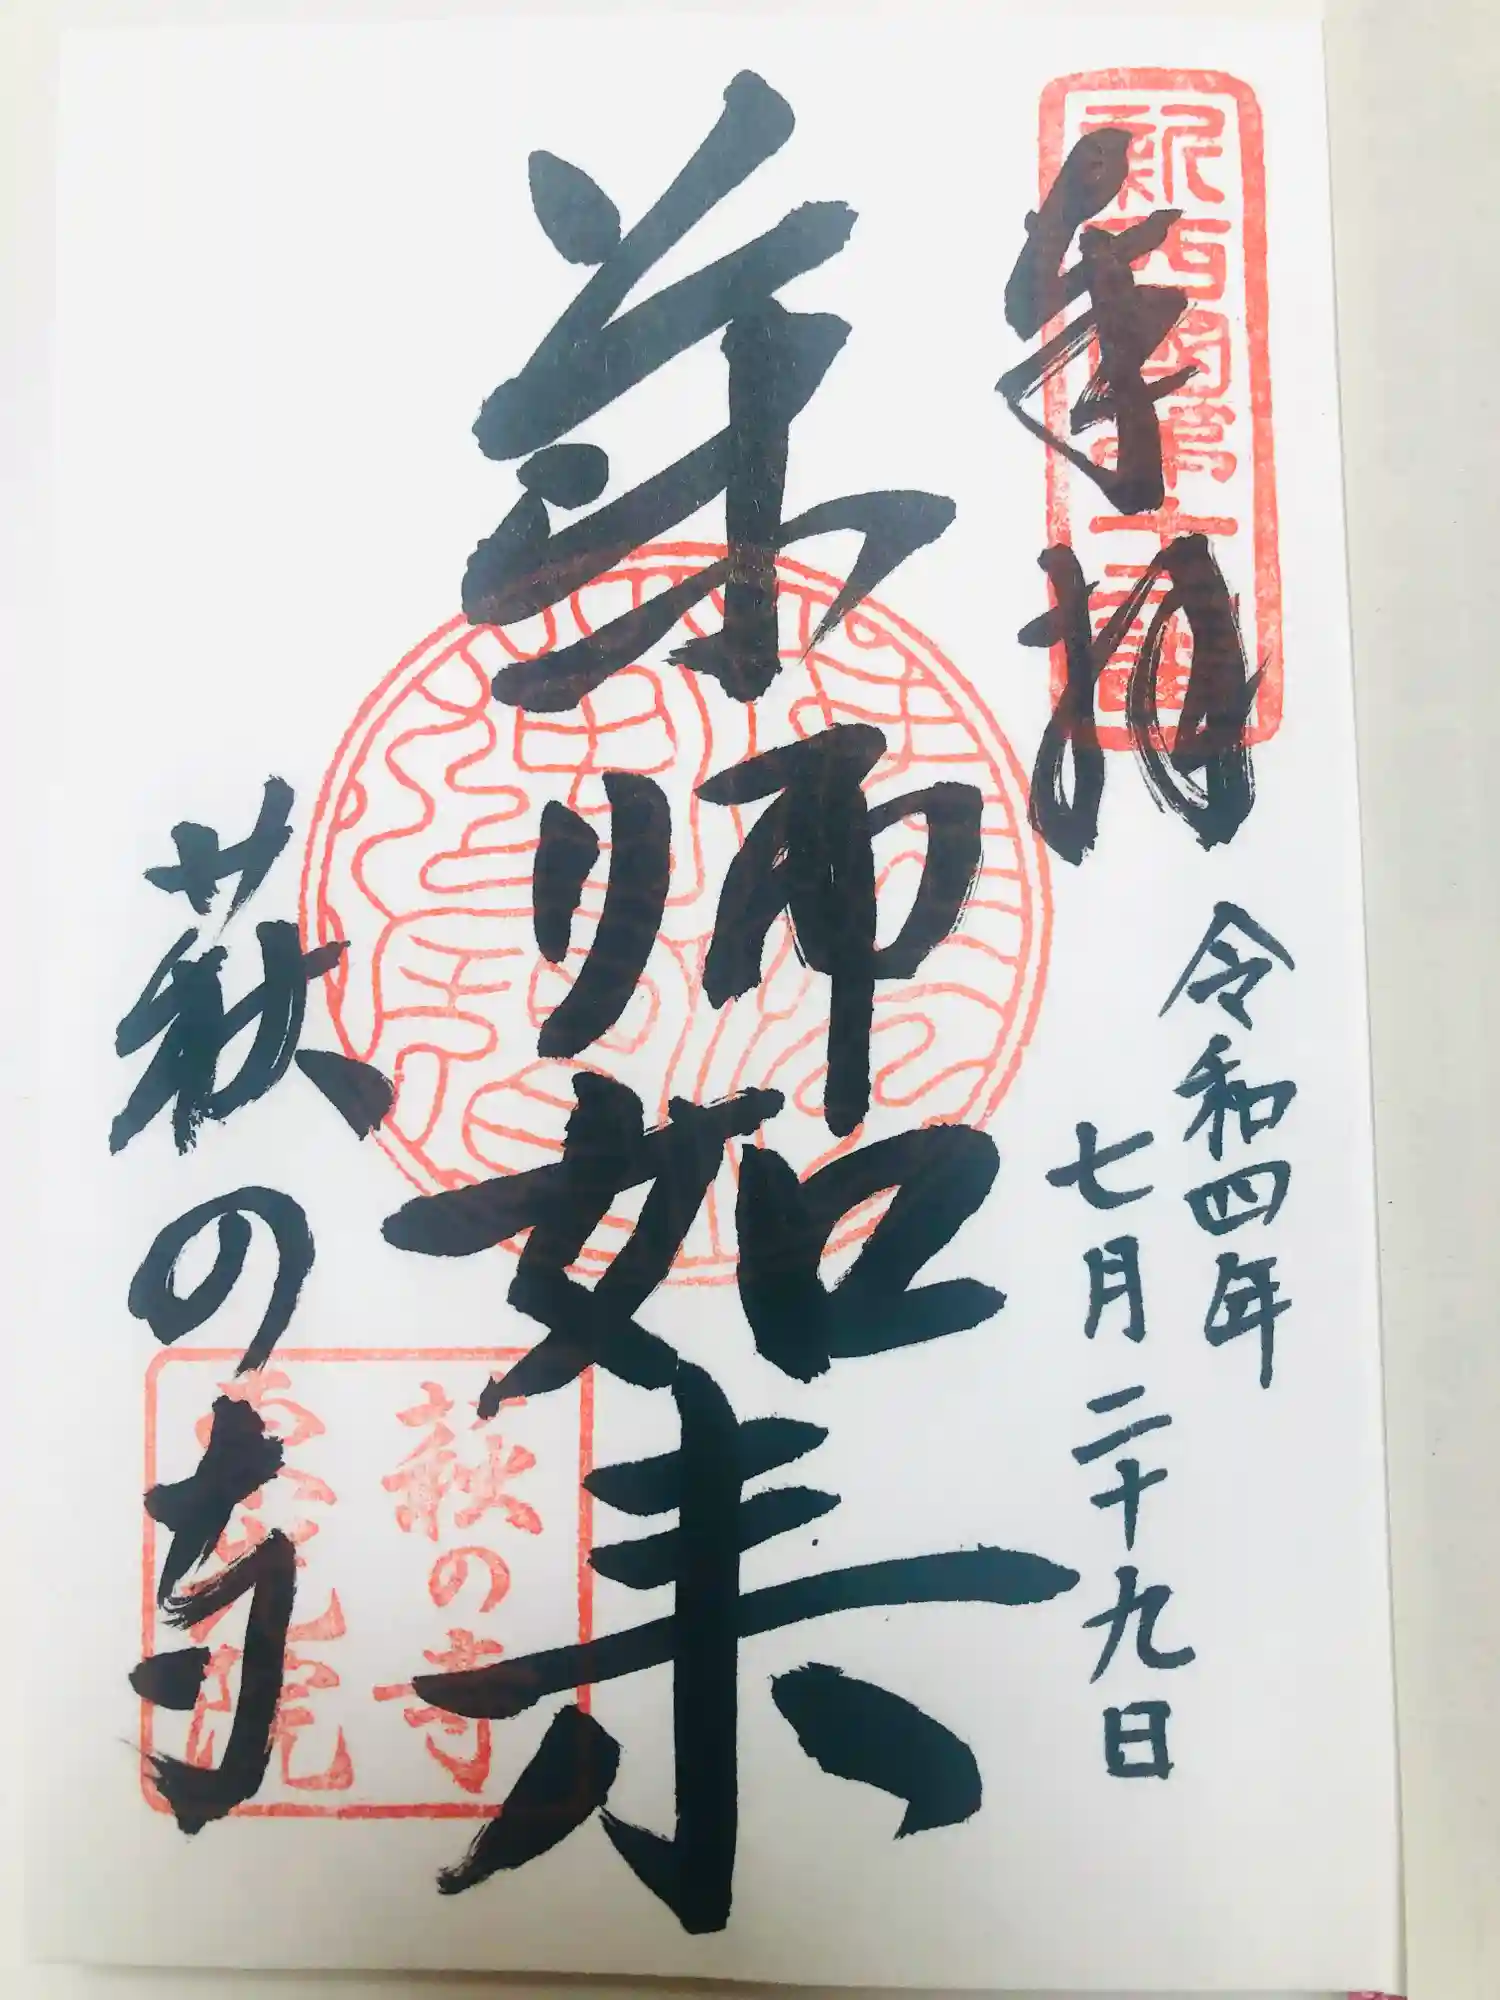 奉拝
新西国第十二番
令和四年
七月二十九日
薬師如来
萩の寺
萩の寺
東光院